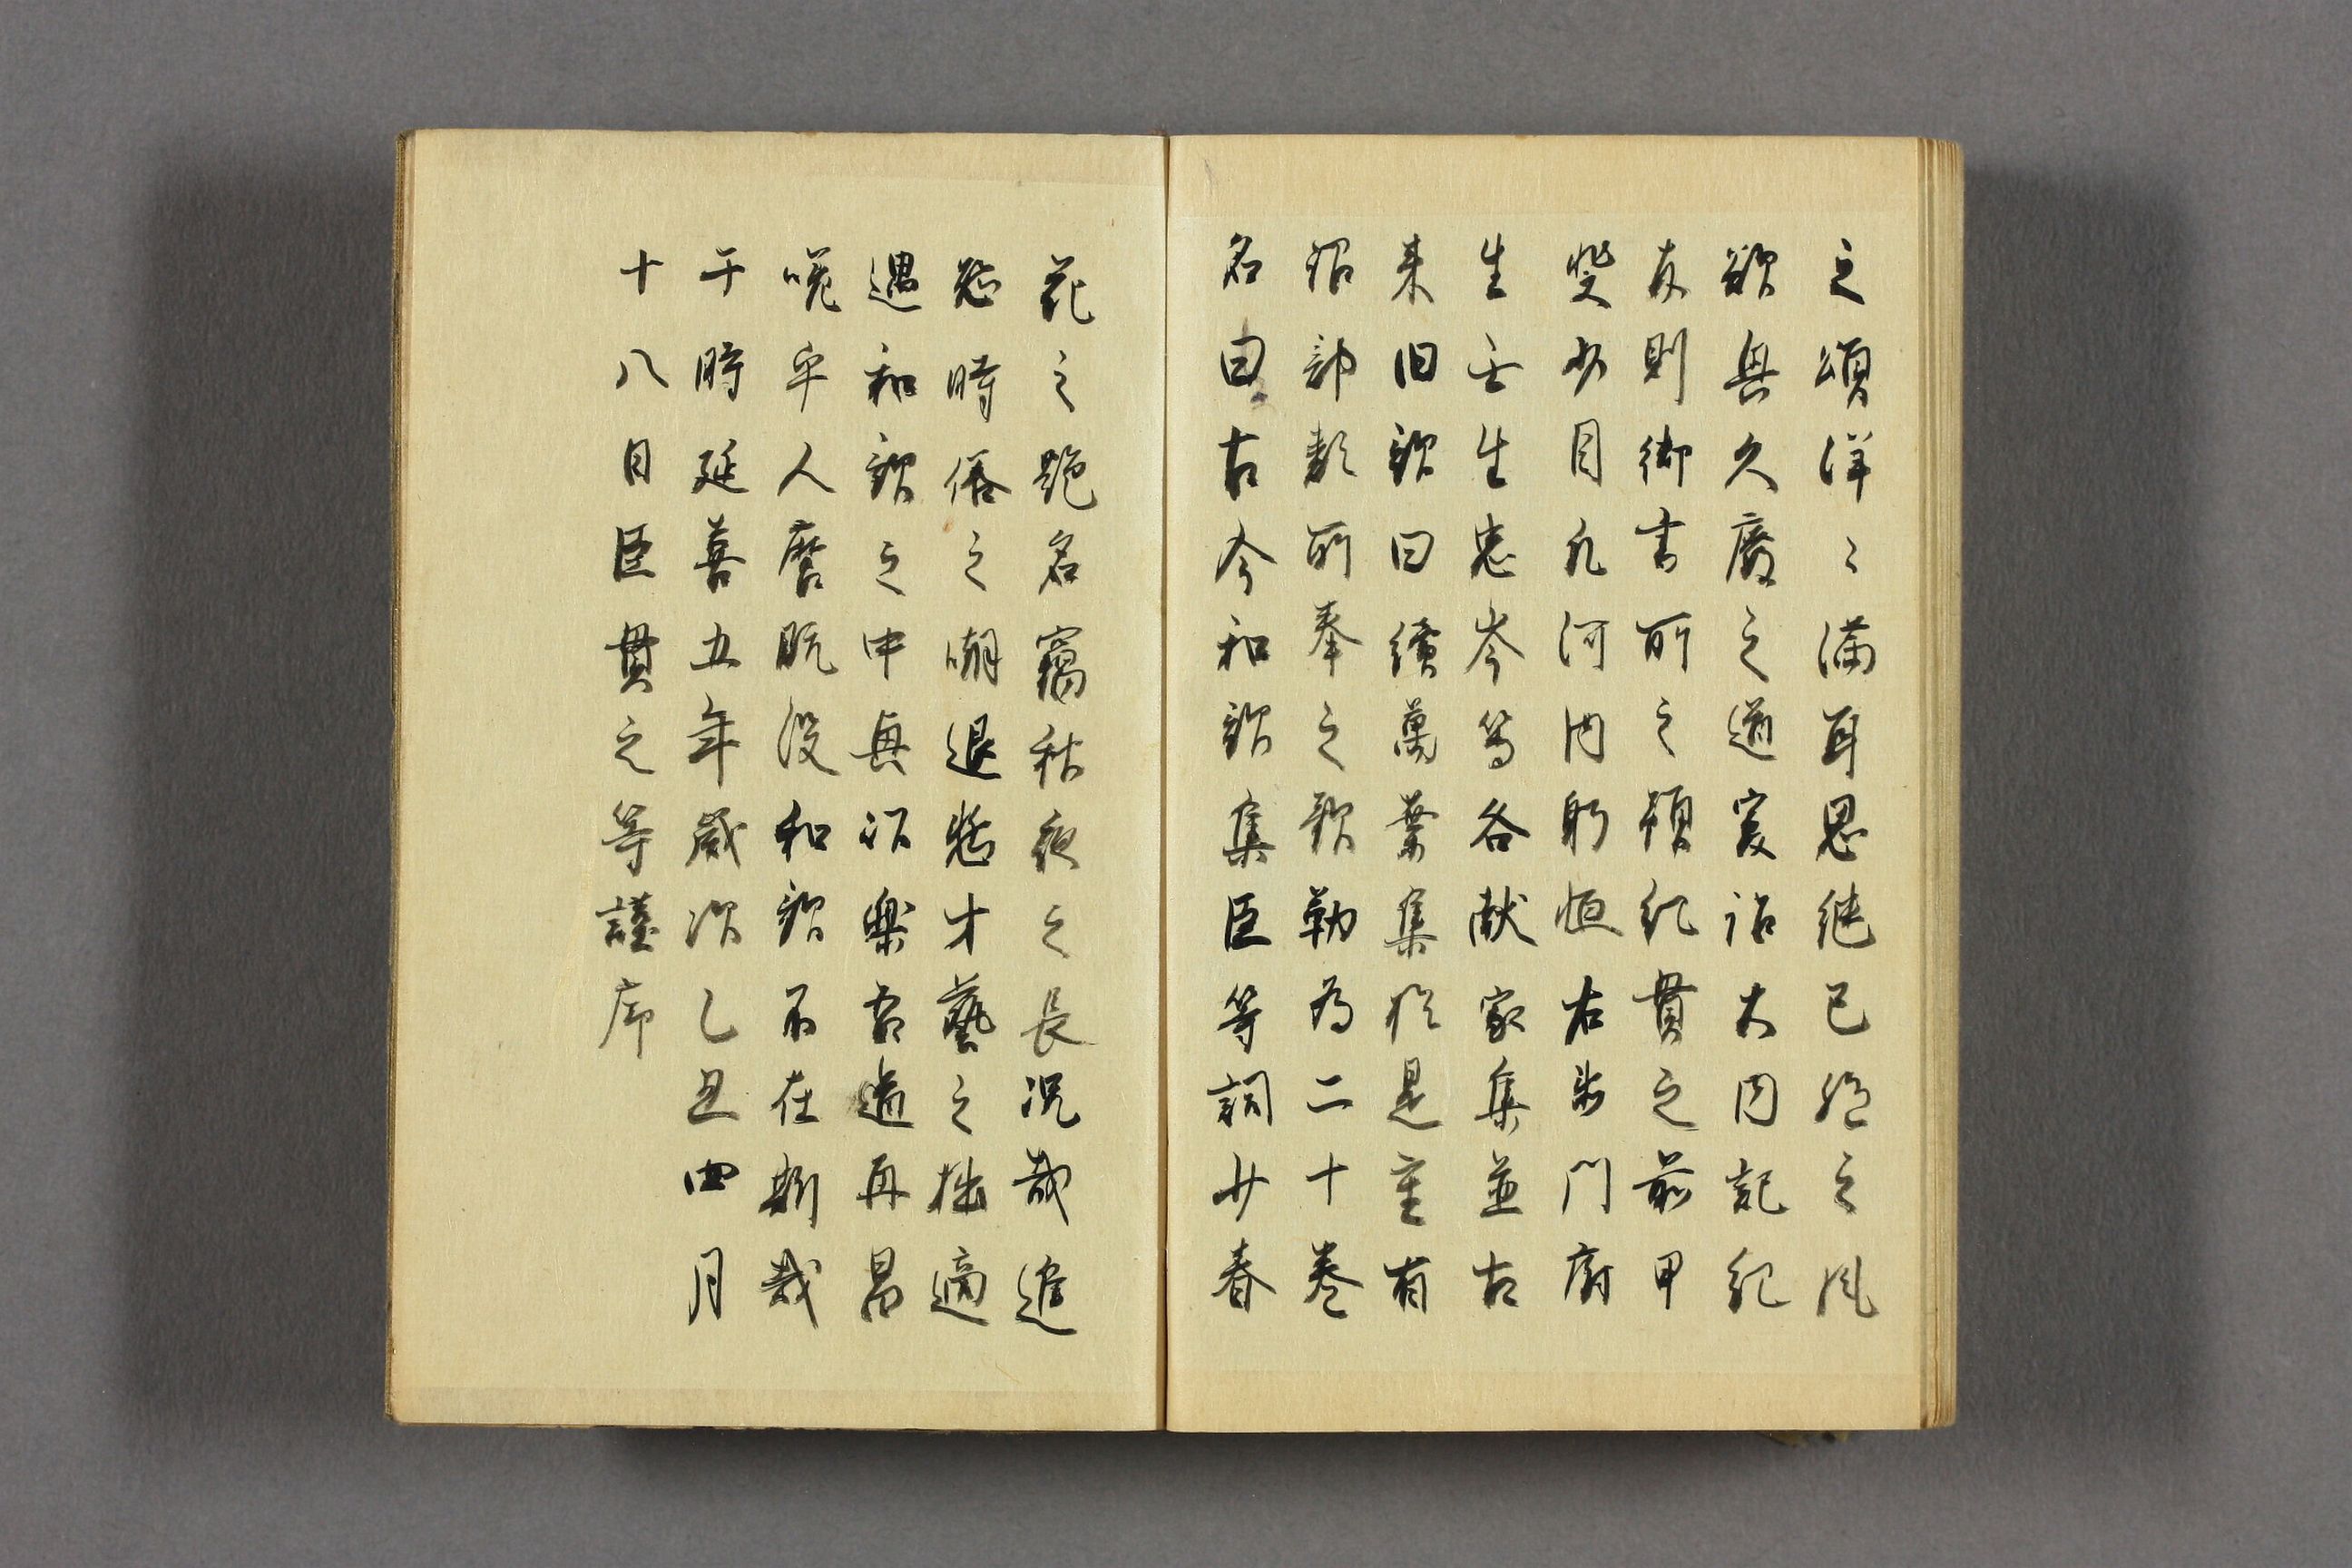 之頌洋〻満耳思継已絶之風
欲興久廃之道爰詔大内記紀
友則御書所之預紀貫之前甲
斐少目凡河内躬恒右衛門府
生壬生忠岑等各献家集並古
来旧歌曰續萬葉集於是重有
詔部類所奉之歌勒為二十巻
名曰古今和歌集臣等詞少春
花之艶名竊秋夜之長况哉進
恐時俗之嘲退慙才藝之拙適
遇和歌之中興以樂吾道再昌
嗟乎人麿既没和歌不在斯哉
于時延喜五年歳次乙丑四月
十八日臣貫之等謹序